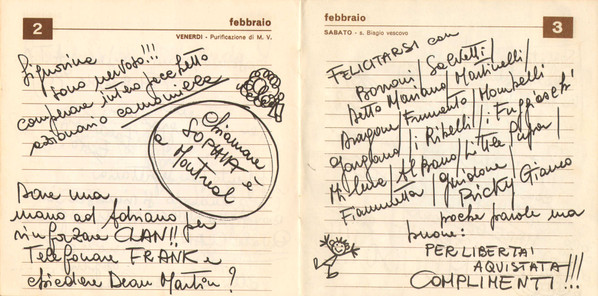 2
febbraio
VENERDI - Purificazione di M. V.
Signorina
sono nervoso!!!
comperare intero pacchetto
azionario camomilla
Chiamare
SOPHIA
a
Montreal
Dare una
mano ad Adriano per
rinforzare CLAN!!
Telefonare FRANK e
chiedere Dean Martin?
febbraio
3
SABATO - s. Biagio vescovo
FELICITARSI con
Bonori/Salvetti/
Detto Mariano/Martinelli/
Aragone/Frumento/Mombelli
Gargano/i Ribelli/i Fuggiaschi
Milena/Al Bano/Little Pupa/
Fiammetta/Guidone/
Ricky Gianco
poche parole ma
buone:
PER LIBERTA'
AQUISTATA
COMPLIMENTI!!!